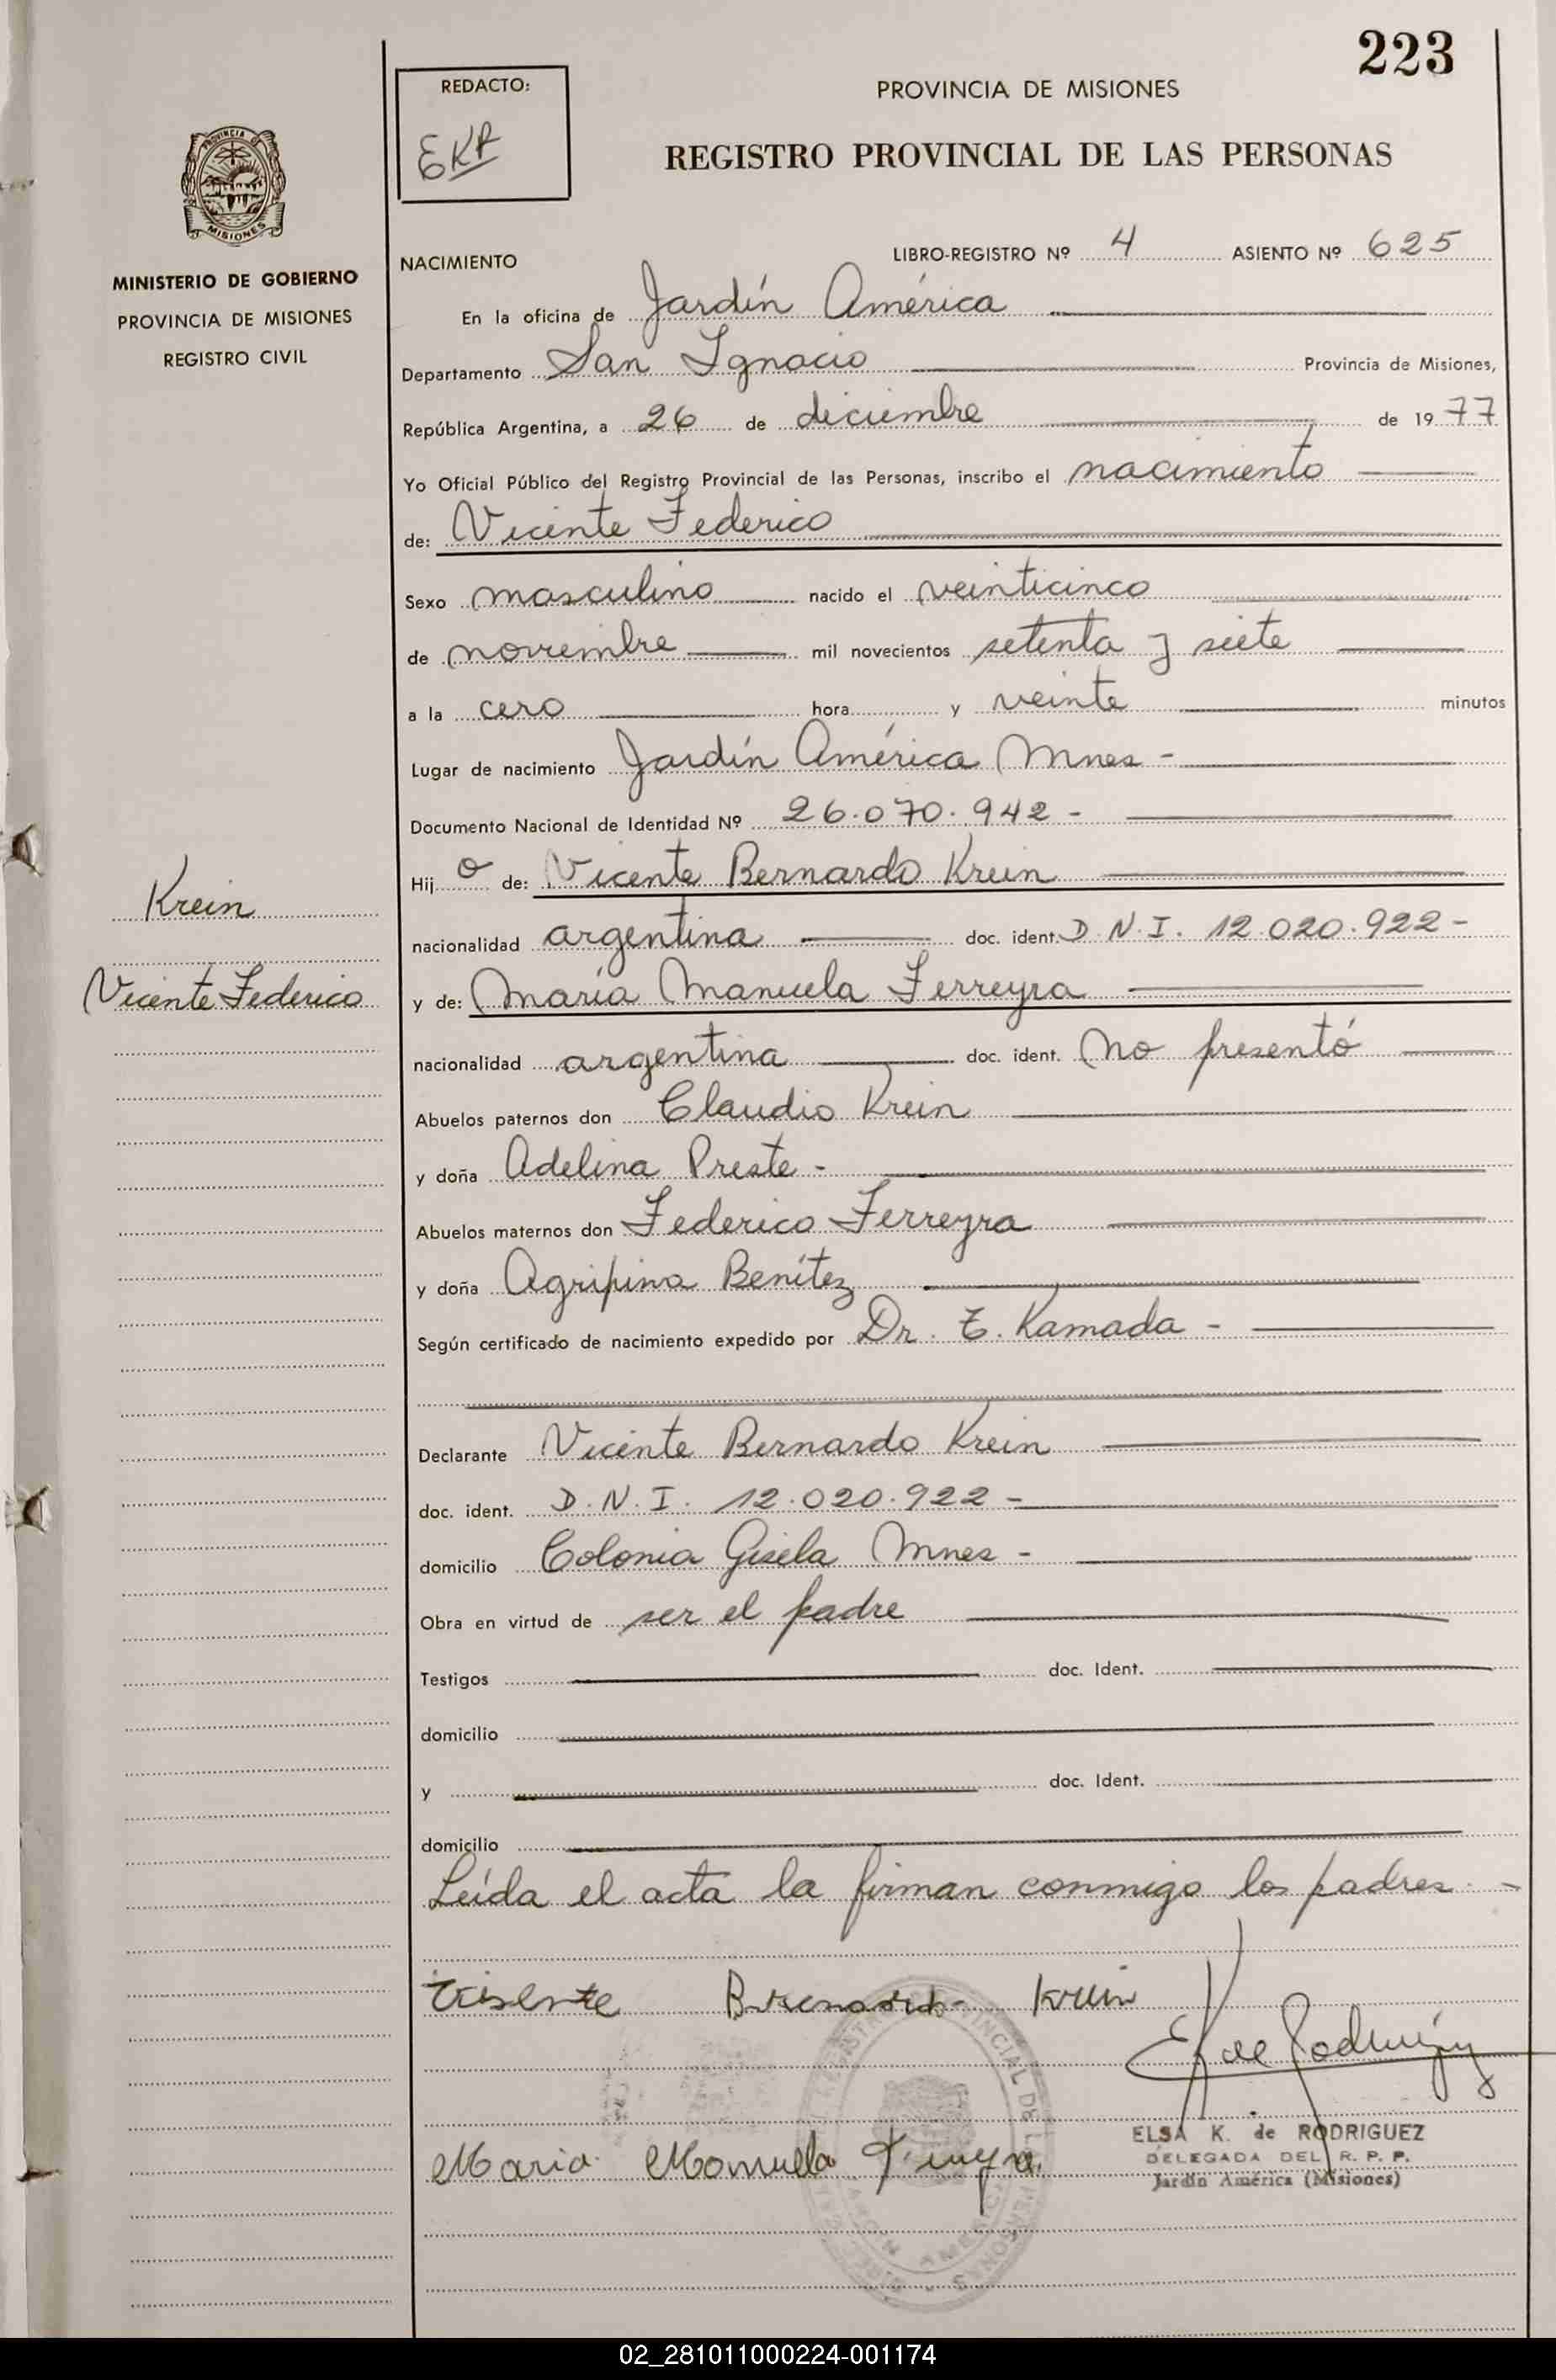 223
REDACTO:
EKR
PROVINCIA DE MISIONES
REGISTRO PROVINCIAL DE LAS PERSONAS
PROVINCIA DE
MISIONES
MINISTERIO DE GOBIERNO
PROVINCIA DE MISIONES
REGISTRO CIVIL
NACIMIENTO
LIBRO-REGISTRO Nº 4 ASIENTO Nº 625
En la oficina de Jardín América
Departamento San Ignacio Provincia de Misiones,
República Argentina, a 26 de diciembre de 1977
Yo Oficial Público del Registro Provincial de las Personas, inscribo el nacimiento
de: Vicente Federico
Sexo masculino nacido el veinticinco
de noviembre mil novecientos setenta y siete
a la cero hora y veinte minutos
Lugar de nacimiento Jardín América Mnes -
Documento Nacional de Identidad Nº 26.070.942 -
Hijo de: Vicente Bernardo Krein
Krein
nacionalidad argentina doc. ident. D.N.I. 12.020.922 -
Vicente Federico
y de: María Manuela Ferreyra
nacionalidad argentina doc. ident. No presentó
Abuelos paternos don Claudio Krein
y doña Adelina Preste -
Abuelos maternos don Federico Ferreyra
y doña Agripina Benítez
Según certificado de nacimiento expedido por Dr. T. Kamada -
Declarante Vicente Bernardo Krein
doc. ident. D.N.I. 12.020.922 -
domicilio Colonia Gisela Mnes -
Obra en virtud de ser el padre
Testigos doc. Ident.
domicilio
y doc. Ident.
domicilio
Leída el acta la firman conmigo los padres. -
Krein
E K de Rodriguez
ELSA K. de RODRIGUEZ
DELEGADA DEL R. P. P.
Jardín América (Misiones)
Maria Manuela
02_281011000224-001174